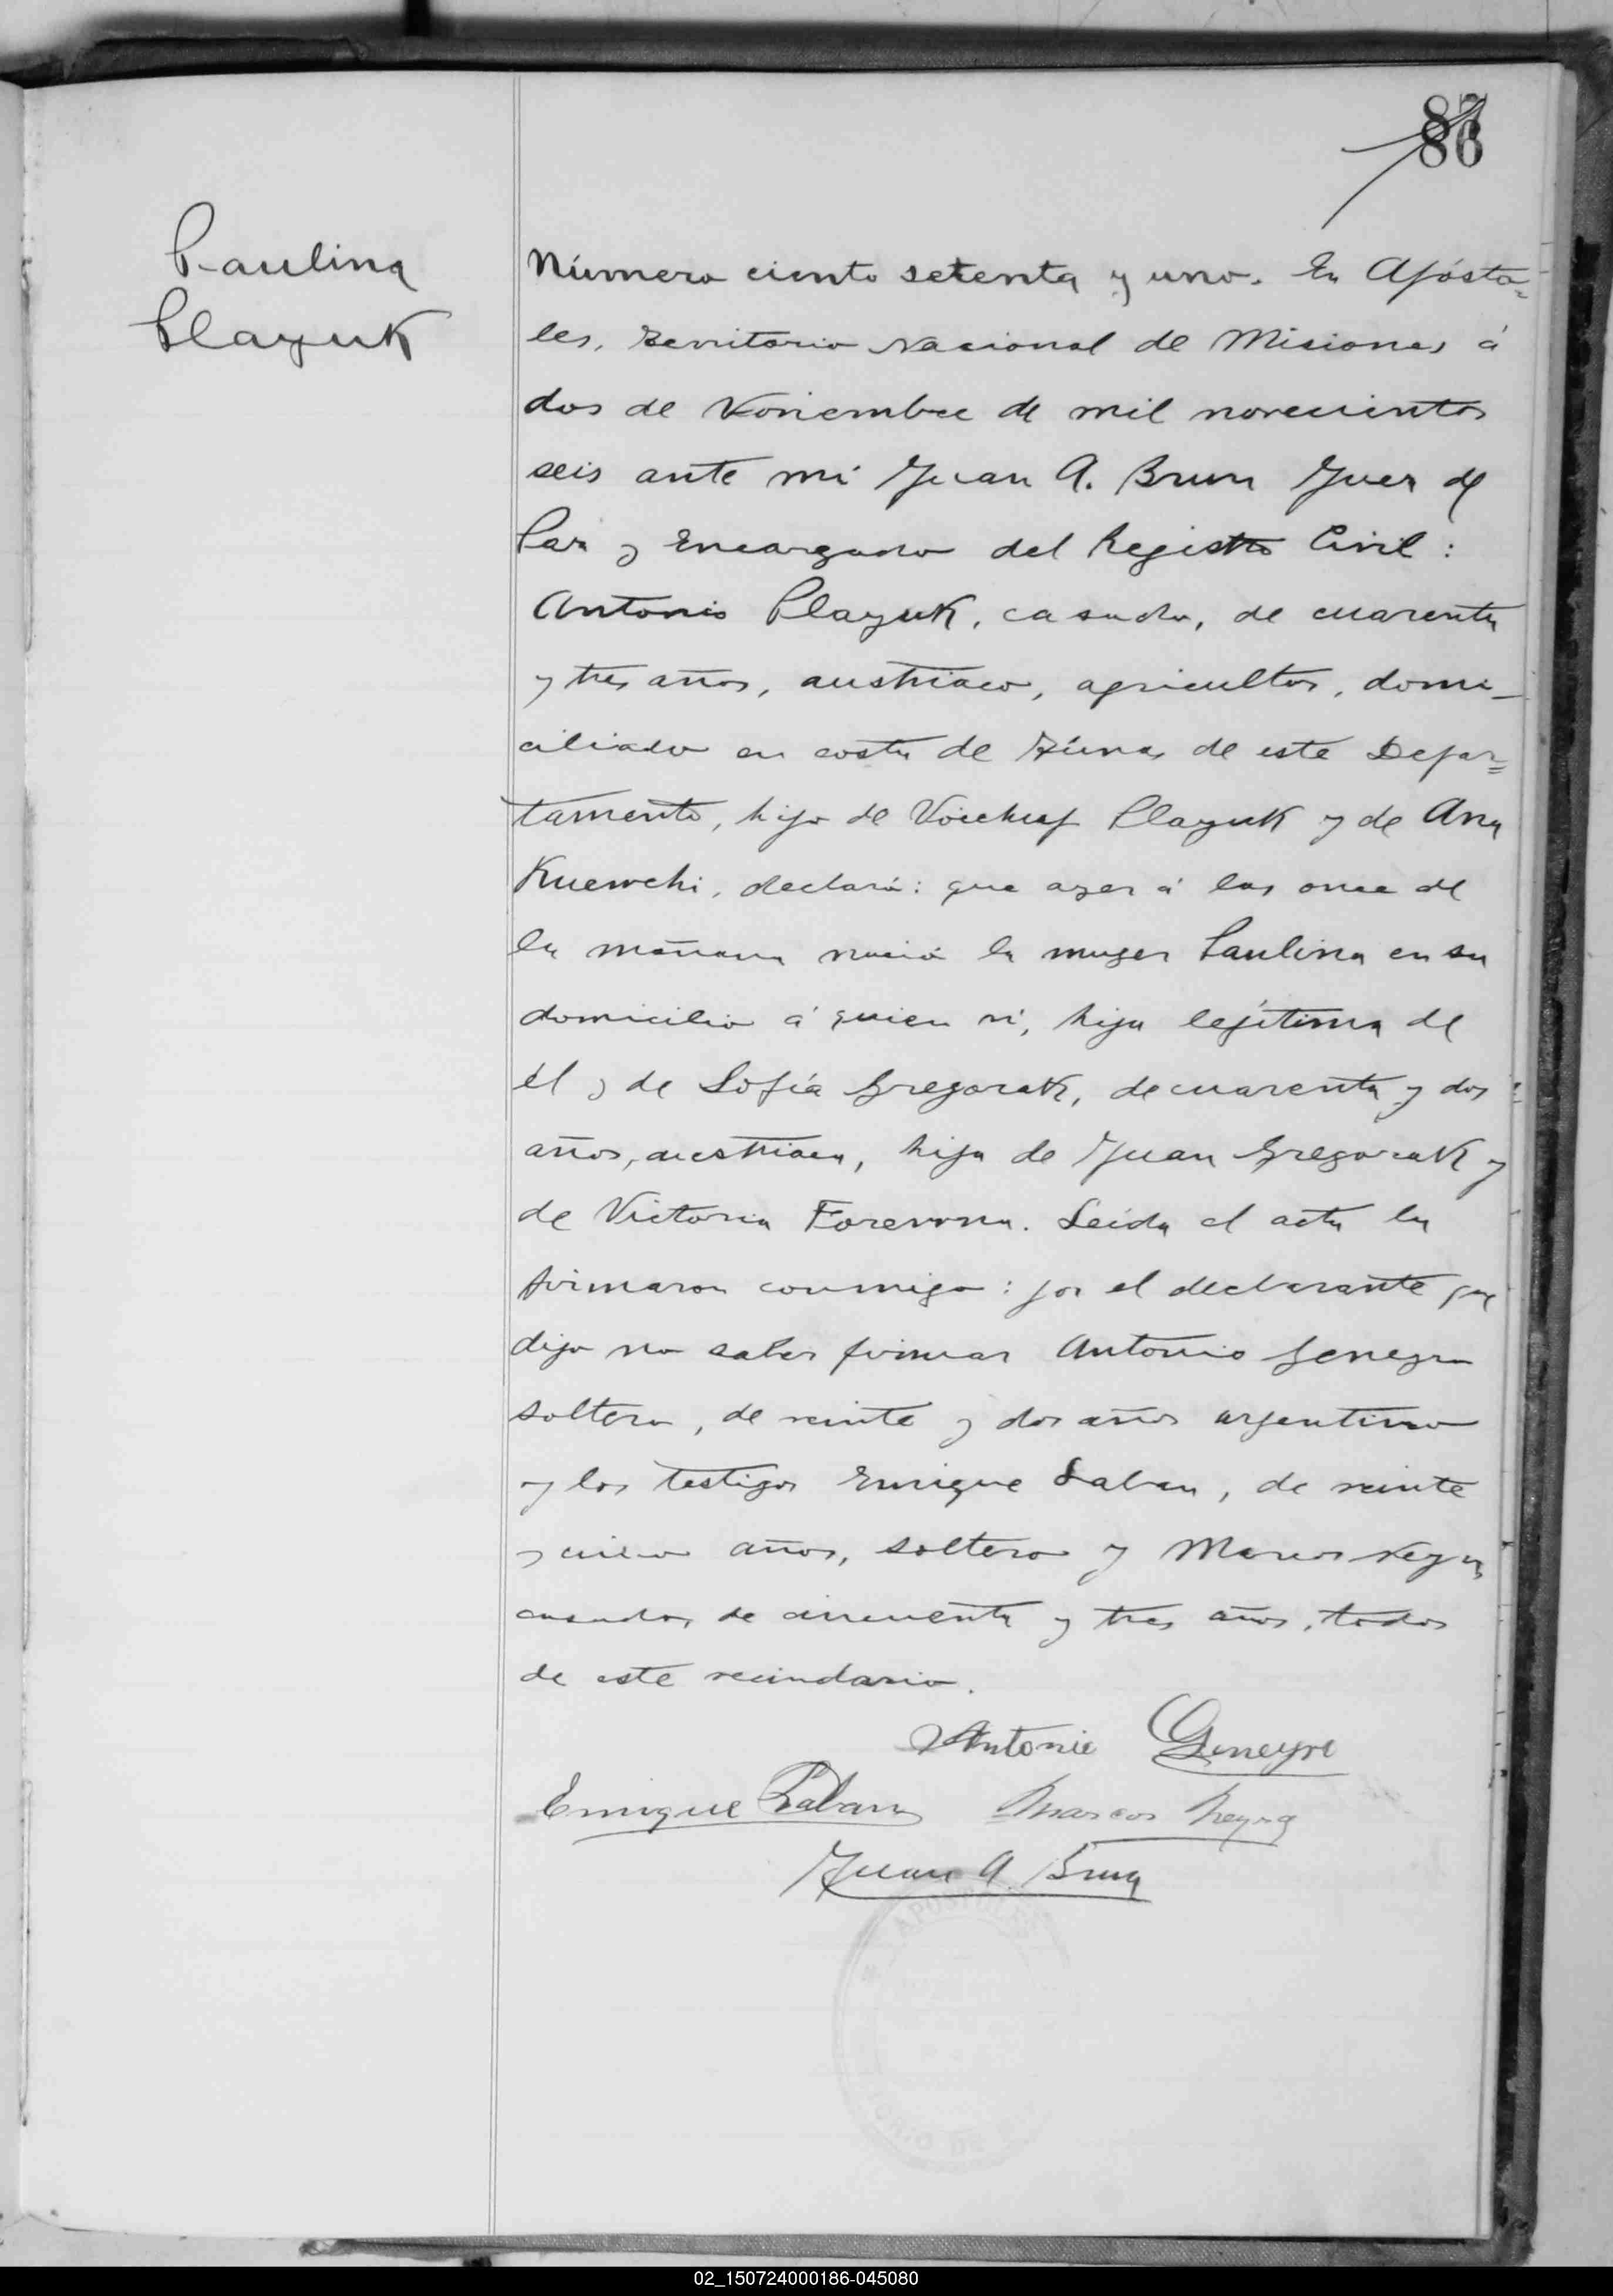 87
86
Paulina
Plazuk
Número ciento setenta y uno. En Apósto=
les, Territorio Nacional de Misiones á
dos de Noviembre de mil novecientos
seis ante mi Juan A. Brun Juez de
Paz y Encargado del Registro Civil:
Antonio Plazuk, casado, de cuarenta
y tres años, austriaco, agricultor, domi-
ciliado en costa de de este Depar=
tamento, hijo de Plazuk y de Ana
declaró: que ayer á las once de
la mañana nació la muger Paulina en su
domicilio á quien ví, hija legítima de
él y de Sofía Gregorak, de cuarenta y dos
años, austriaca, hija de Juan Gregorak y
de Victoria Leida el acta la
firmaron conmigo: por el declarante que
dijo no saber firmar Antonio Geneyro
soltero, de veinte y dos años argentino
y los testigos Enrique Laban, de veinte
y cinco años, soltero y Marcos Neyra,
casado, de cincuenta y tres años, todos
de este vecindario.
Antonio Geneyro
Enrique Laban Marcos Neyra
Juan A. Brun
APOSTOLES
02_150724000186-045080